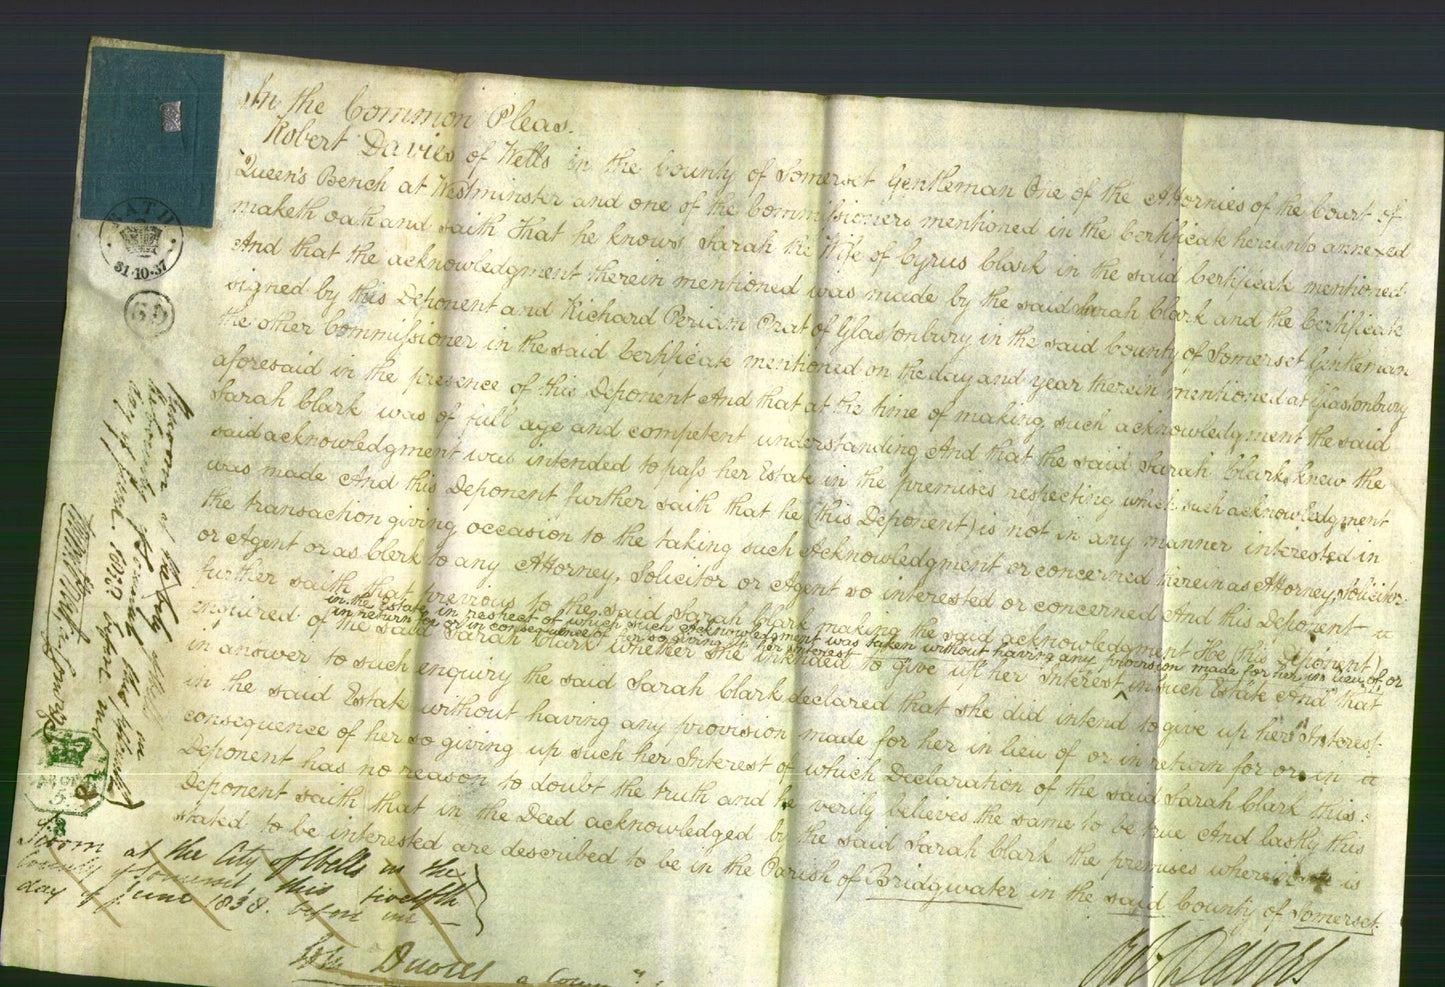 In the Common Pleas.
Robert Davies of Wells in the County of Somerset Gentleman One of the Attornies of the Court of
Queen's Bench at Westminster and one of the Commissioners mentioned in the Certificate hereunto annexed
maketh oath and saith That he knows Sarah the Wife of Cyrus Clark in the said Certificate mentioned
And that the acknowledgment therein mentioned was made by the said Sarah Clark and the Certificate
signed by this Deponent and Richard Periam Prat of Glastonbury in the said County of Somerset Gentleman
the other Commissioner in the said Certificate mentioned on the day and year therein mentioned at Glastonbury
aforesaid in the presence of this Deponent And that at the time of making such acknowledgment the said
Sarah Clark was of full age and competent understanding And that the said Sarah Clark knew the
said acknowledgment was intended to pass her Estate in the premises respecting which such acknowledgment
was made And this Deponent further saith that he (this Deponent) is not in any manner interested in
the transaction giving occasion to the taking such Acknowledgment or concerned therein as Attorney, Solicitor
or Agent or as Clerk to any Attorney, Solicitor or Agent so interested or concerned And this Deponent
further saith that previous to the said Sarah Clark making the said acknowledgment He (this Deponent)
in the Estate in respect of which such Acknowledgment was taken without having any provision made for her in lieu of or
in return for or in consequence of her so giving up her interest
enquired of the said Sarah Clark whether she intended to give up her Interest in such Estate And that
in answer to such enquiry the said Sarah Clark declared that she did intend to give up her Interest
in the said Estate without having any provision made for her in lieu of or in return for or in
consequence of her so giving up such her Interest of which Declaration of the said Sarah Clark this
Deponent has no reason to doubt the truth and he verily believes the same to be true And lastly this
Deponent saith that in the Deed acknowledged by the said Sarah Clark the premises wherein is
stated to be interested are described to be in the Parish of Bridgwater in the said County of Somerset.
Sworn at the City of Wells in the
County of Somerset, this twelfth
day of June 1838. before me
Davies
Davies
BATH
31·10·37